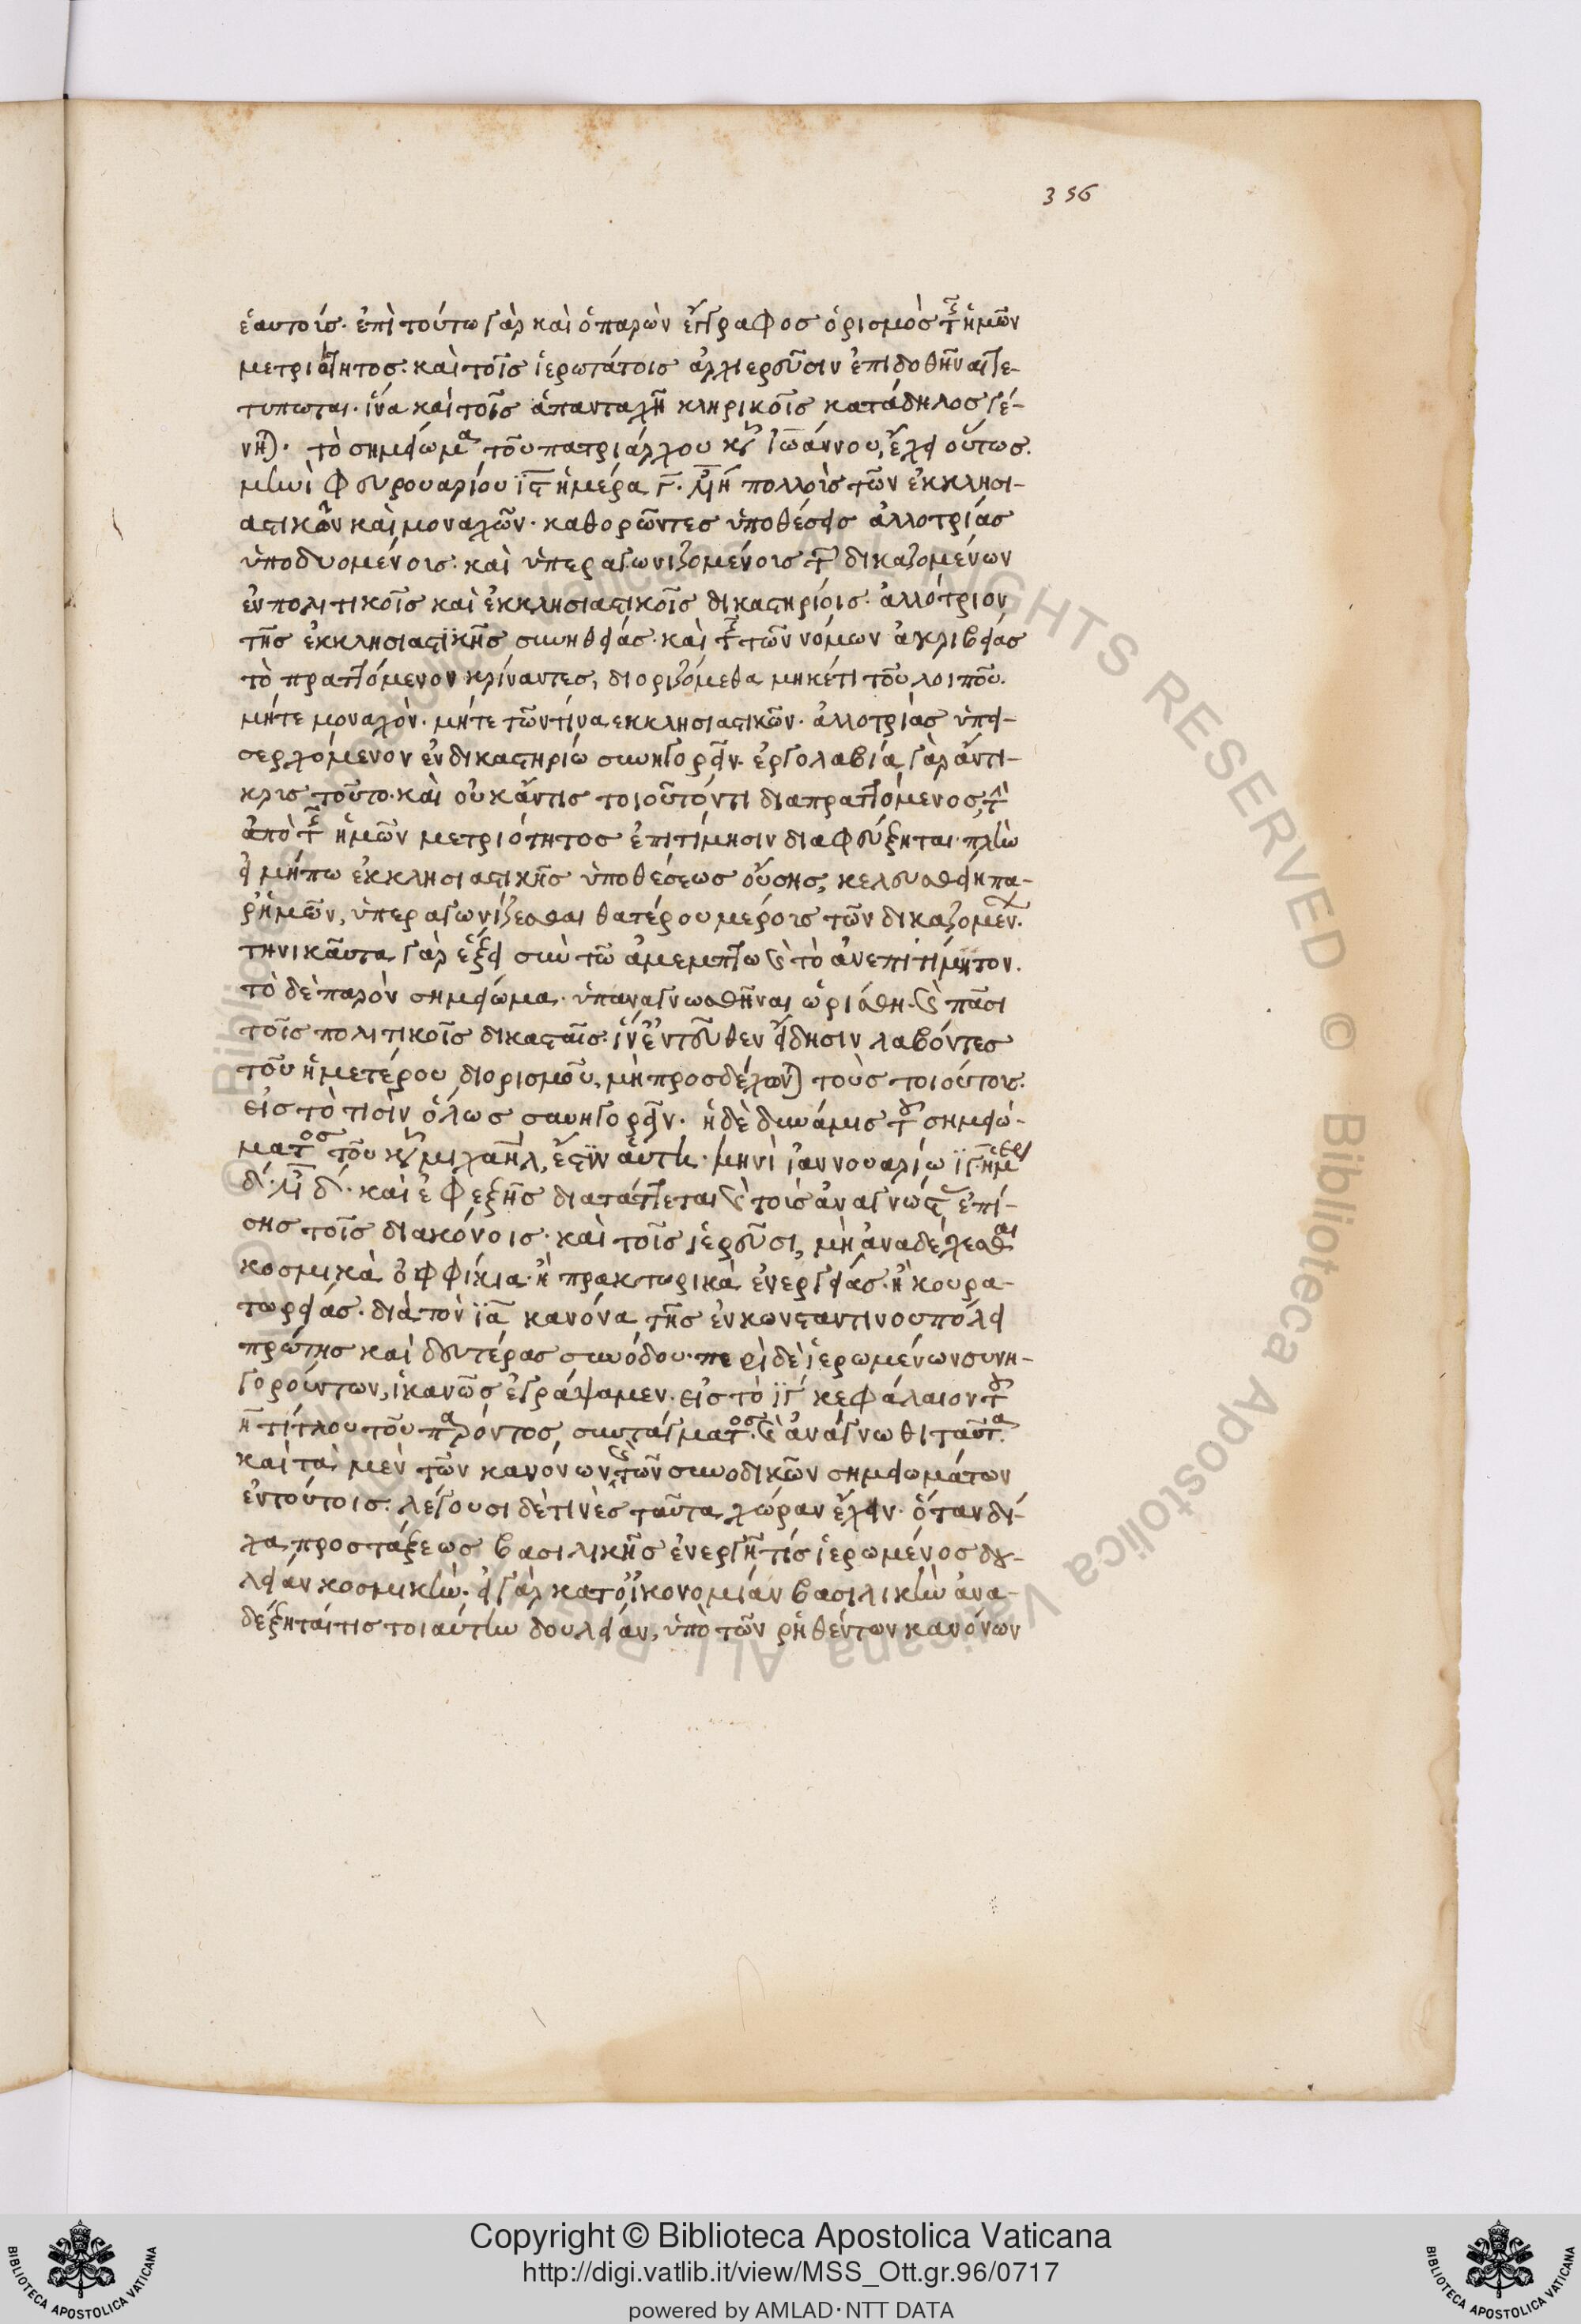 356
ἑαυτοῖς. ἐπὶ τούτω γὰρ καὶ ὁ παρὼν ἔγγραφος ὁρισμὸς τῆς ἡμῶν
μετριότητος. καὶ τοῖς ἱερωτάτοις ἀρχιερεῦσιν ἐπιδοθῆναι τε-
τύπωται. ἵνα καὶ τοῖς ἁπανταχῆ κληρικοῖς κατάδηλος γέ-
νηται. τὸ σημείωμα τοῦ πατριάρχου κυροῦ Ἰωάννου, ἔχει οὕτως.
μηνὶ φευρουαρίου ις ἡμέρα γ. ἰνδ η πολλοὺς τῶν ἐκκλησι-
αστικῶν καὶ μοναχῶν. καθορῶντες ὑποθέσεις ἀλλοτρίας
ὑποδυομένους. καὶ ὑπεραγωνιζομένους τῶν δικαζομένων
ἐν πολιτικοῖς καὶ ἐκκλησιαστικοῖς δικαστηρίοις. ἀλλότριον
τῆς ἐκκλησιαστικῆς συνηθείας. καὶ τῆς τῶν νόμων ἀκριβείας
τὸ πραττόμενον κρίναντες, διοριζόμεθα μηκέτι τοῦ λοιποῦ.
μήτε μοναχὸν. μήτε τῶν τίνα ἐκκλησιαστικῶν. ἀλλοτρίας ὑπει-
σερχόμενον ἐν δικαστηρίω συνηγορεῖν. ἐργολαβία γὰρ ἄντι-
κρις τοῦτο. καὶ οὐκ ἄν τις τοιοῦτόν τι διαπραττόμενος, τὴν
ἀπὸ τῆς ἡμῶν μετριότητος ἐπιτίμησιν διαφεύξηται. πλὴν
εἰ μήπω ἐκκλησιαστικῆς ὑποθέσεως οὔσης, κελευσθείη πα-
ρ' ἡμῶν, ὑπεραγωνίζεσθαι θατέρου μέρους τῶν δικαζομένων.
τηνικαῦτα γὰρ ἕξει σὺν τῶ ἀμέμπτω καὶ τὸ ἀνεπιτίμητον.
τὸ δὲ παρὸν σημείωμα. ὑπαναγνωσθῆναι ὡρίσθη. καὶ πᾶσι
τοῖς πολιτικοῖς δικασταῖς. ἵν' ἐντεῦθεν εἴδησιν λαβόντες
τοῦ ἡμετέρου διορισμοῦ, μὴ προσδέχωνται τοὺς τοιούτους.
εἰς τὸ τισὶν ὅλως συνηγορεῖν. ἡ δὲ δύναμις τοῦ σημειώ-
ματος τοῦ κυροῦ μιχαὴλ, ἔστιν αὕτη. μηνὶ ἰαννουαρίω ιγ ἡμέρα
δ. ἰνδ δ. καὶ ἐφεξῆς διατάττεται καὶ τοῖς ἀναγνώσταις ἐπί-
σης τοῖς διακόνοις. καὶ τοῖς ἱερεῦσι, μὴ ἀναδέχεσθαι
κοσμικὰ ὀφφίκια. ἢ πρακτωρικὰ ἐνεργείας. ἢ κουρα-
τωρείας. διὰ τὸν ια κανόνα τῆς ἐν κωνσταντινουπόλει
πρώτης καὶ δευτέρας συνόδου. περὶ δὲ ἱερωμένων συνη-
γορούντων, ἱκανῶς ἐγράψαμεν. εἰς τὸ ιγ κεφάλαιον τοῦ
η τίτλου τοῦ παρόντος συντάγματος. καὶ ἀνάγνωθι ταῦτα.
καὶ τὰ μὲν τῶν κανόνων καὶ τῶν συνοδικῶν σημειωμάτων
ἐν τούτοις. λέγουσι δὲ τινὲς ταῦτα χώραν ἔχειν. ὅταν δί-
χα προστάξεως βασιλικῆς ἐνεργῆ τίς ἱερωμένος δου-
λείαν κοσμικὴν. εἰ γὰρ κατ' οἰκονομίαν βασιλικὴν ἀνα-
δέξηταί τις τοιαύτην δουλείαν, ὑπὸ τῶν ῥηθέντων κανόνων
© Biblioteca Apostolica Vaticana ALL RIGHTS RESERVED
Copyright © Biblioteca Apostolica Vaticana
http://digi.vatlib.it/view/MSS_Ott.gr.96/0717
powered by AMLAD·NTT DATA
BIBLIOTECA APOSTOLICA VATICANA
BIBLIOTECA APOSTOLICA VATICANA